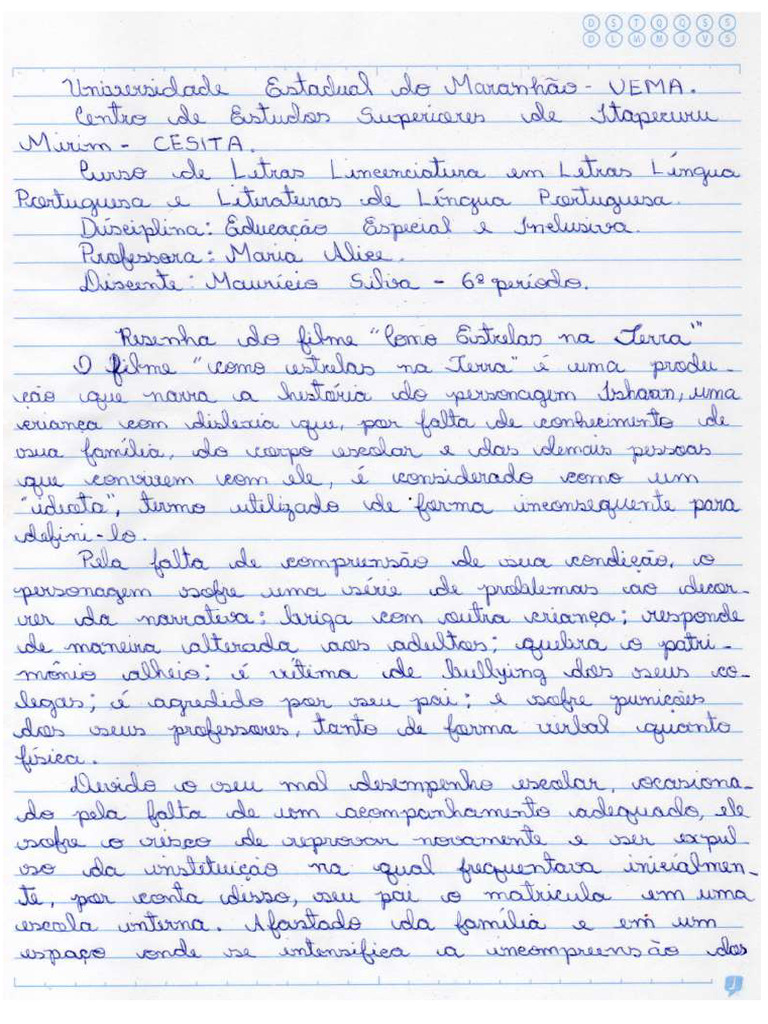 D S T Q Q S S
D L M M J V S
Universidade Estadual do Maranhão - UEMA.
Centro de Estudos Superiores de Itapecuru
Mirim - CESITA.
Curso de Letras Lincenciatura em Letras Língua
Portuguesa e Literaturas de Língua Portuguesa.
Disciplina: Educação Especial e Inclusiva.
Professora: Maria Alice.
Discente: Maurício Silva - 6º período.
Resenha do filme "Como Estrelas na Terra"
O filme "como estrelas na Terra" é uma produ-
ção que narra a história do personagem Ishaan, uma
criança com dislexia que, por falta de conhecimento de
sua família, do corpo escolar e das demais pessoas
que convivem com ele, é considerado como um
"idiota", termo utilizado de forma inconsequente para
defini-lo.
Pela falta de comprensão de sua condição, o
personagem sofre uma série de problemas ao decor-
rer da narrativa: briga com outra criança; responde
de maneira alterada aos adultos; quebra o patri-
mônio alheio; é vítima de bullying dos seus co-
legas; é agredido por seu pai; e sofre punições
dos seus professores, tanto de forma verbal quanto
física.
Devido o seu mal desempenho escolar, ocasiona-
do pela falta de um acompanhamento adequado, ele
sofre o risco de reprovar novamente e ser expul
so da instituição na qual frequentava inicialmen-
te, por conta disso, seu pai o matricula em uma
escola interna. Afastado da família e em um
espaço onde se intensifica a incompreensão dos